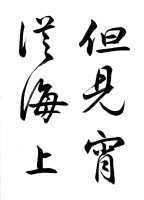 但見宵
從海上